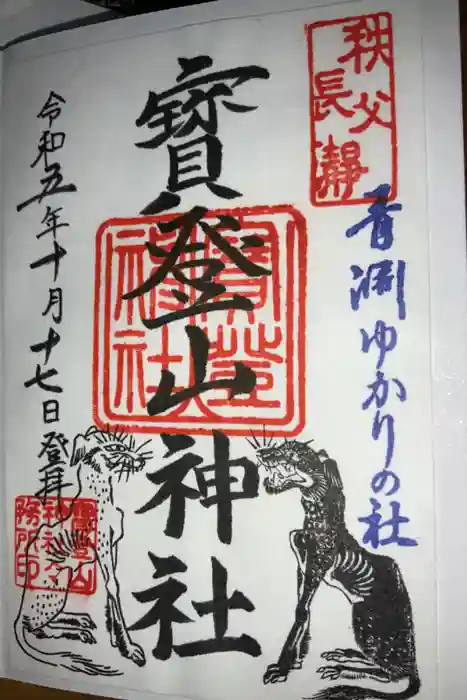 秩父
長瀞
青淵ゆかりの社
寳登山神社
令和五年十月十七日登拝
寳登山
神社
寳登山
神社社
務所印